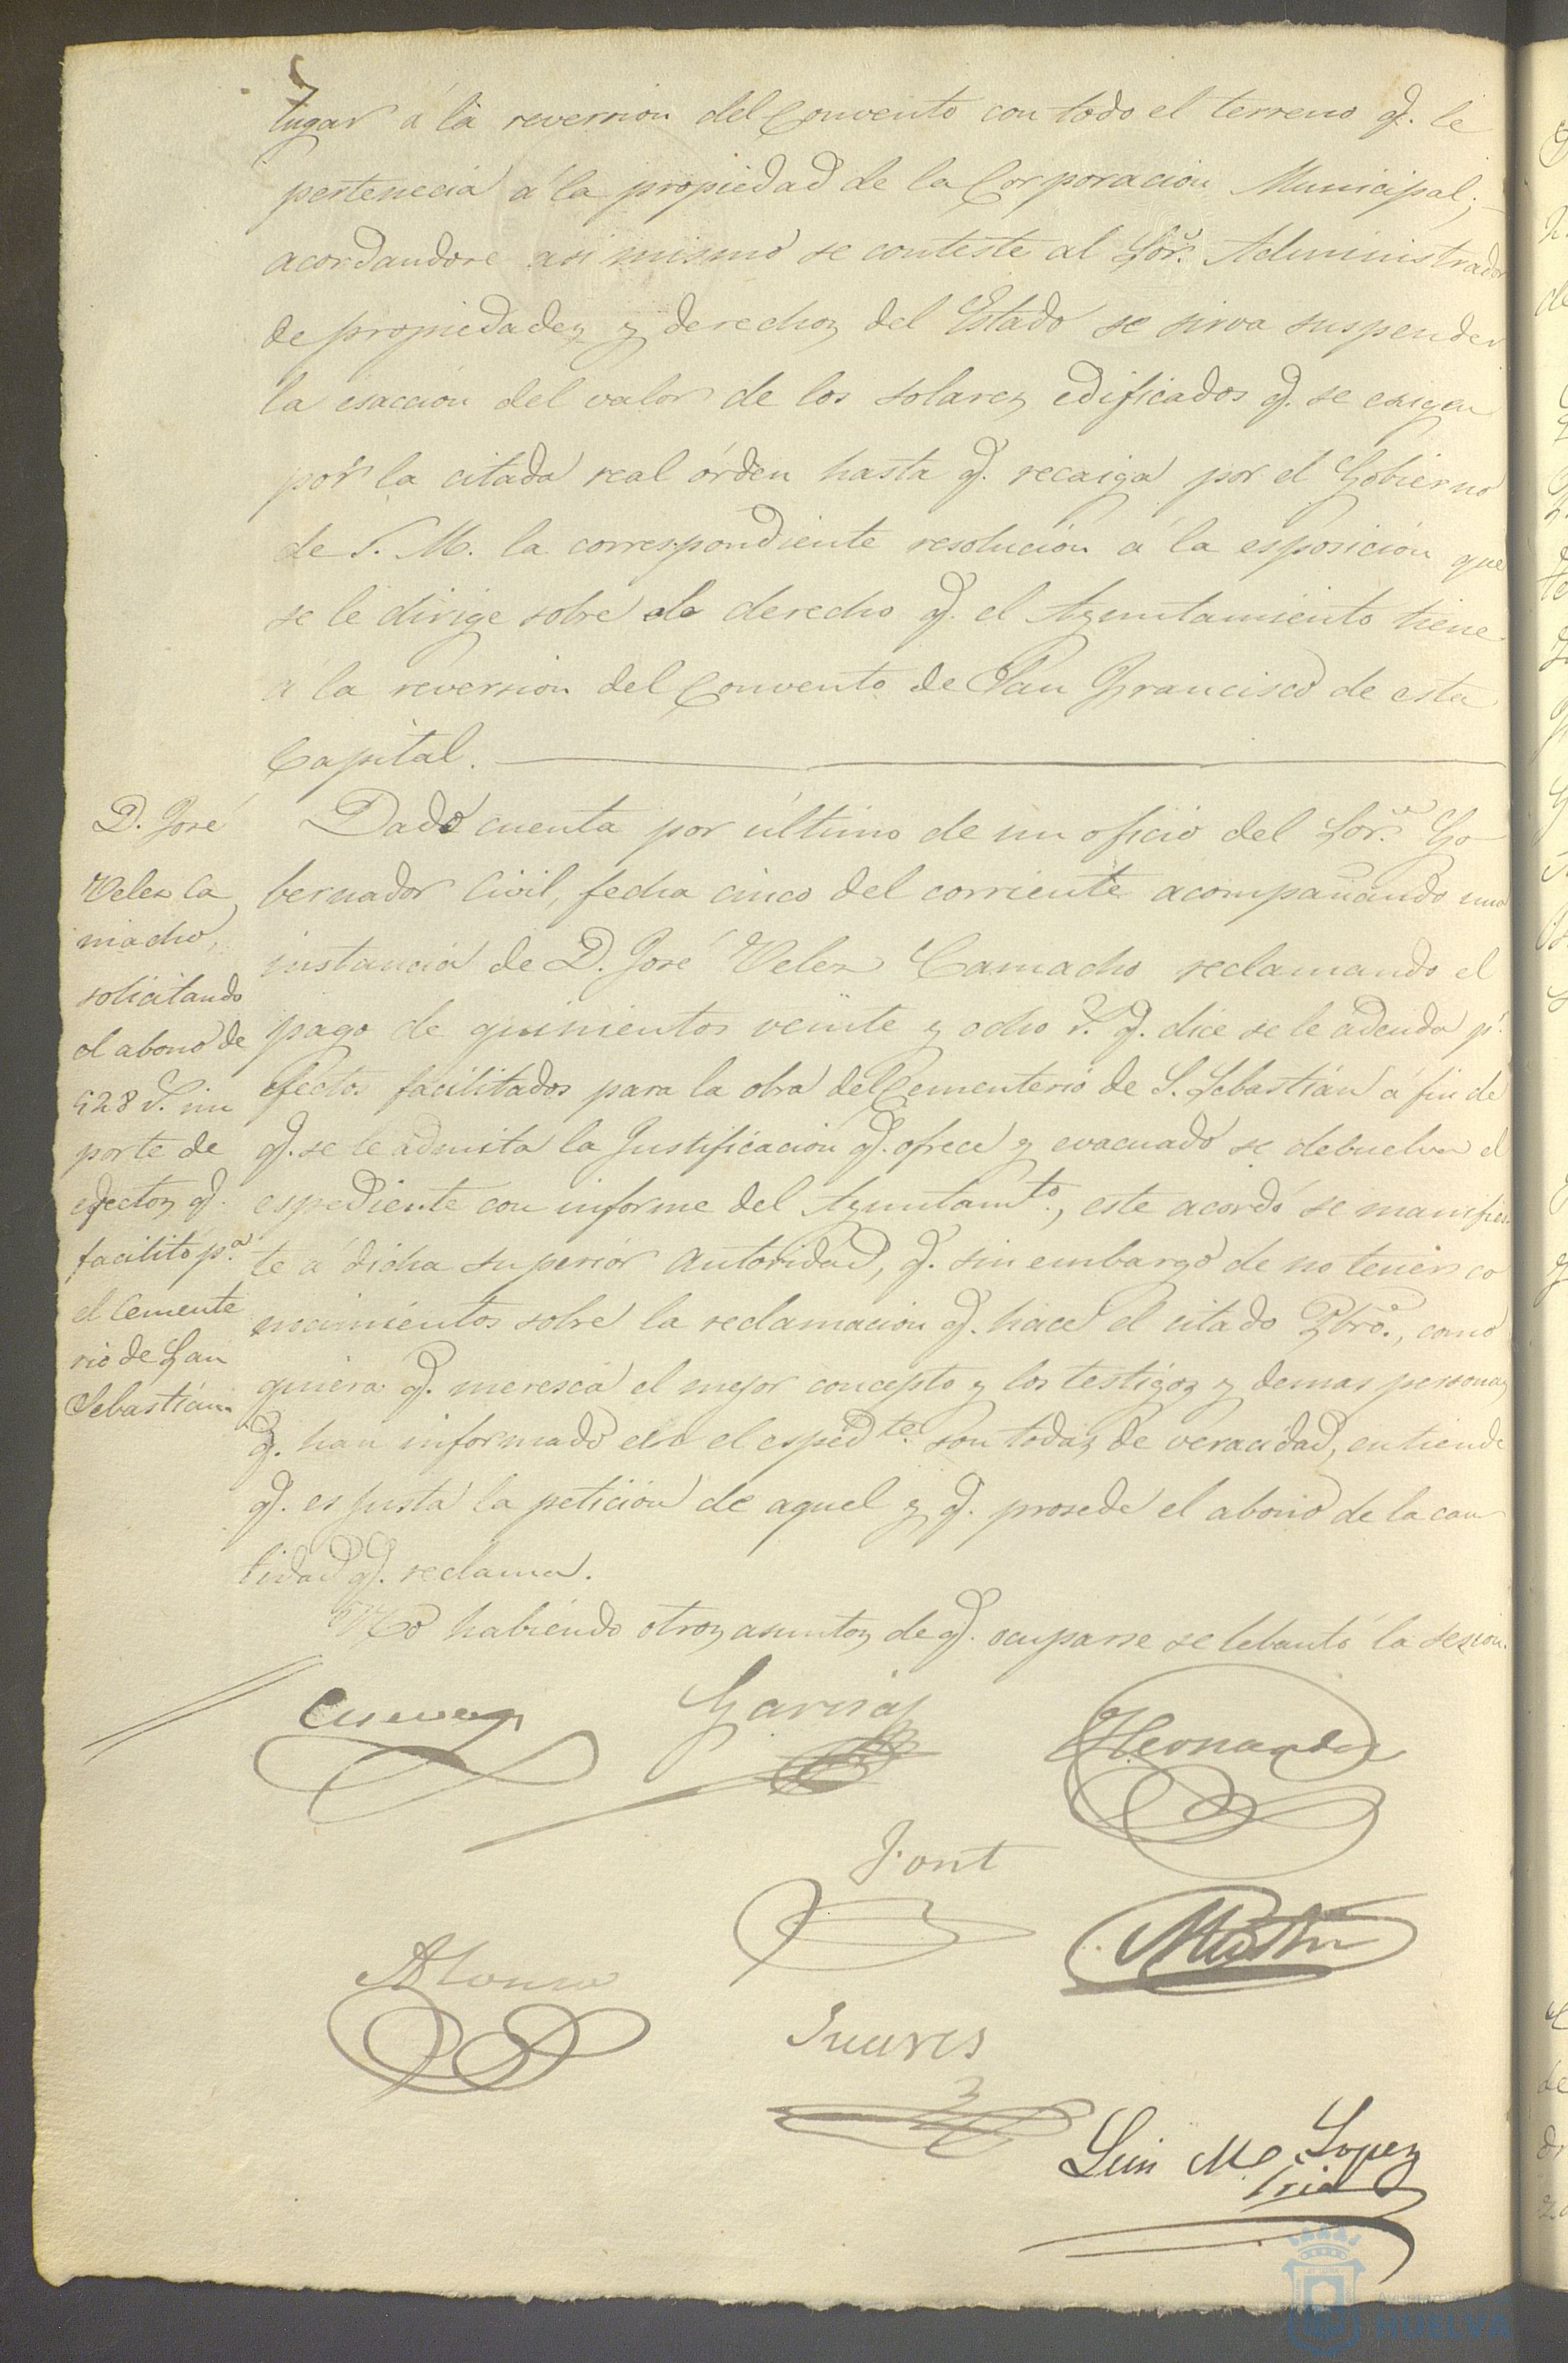 lugar á la reversion del Convento con todo el terreno q. le
pertenecia á la propiedad de la Corporacion Municipal;
acordandose asi mismo se conteste al Sor. Administrador
de propiedades y derechos del Estado se sirva suspender
la esaccion del valor de los solares edificados q. se exigen
por la citada real órden hasta q. recaiga por el Gobierno
de S. M. la correspondiente resolucion á la esposicion que
se le dirige sobre el derecho q. el Ayuntamiento tiene
á la reversion del Convento de San Francisco de esta
Capital.
D. José
Velez Ca
macho,
solicitando
el abono de
528 r. im
porte de
efectos q.
facilitó pa.
el Cemente
rio de San
Sebastián
Dado cuenta por último de un oficio del Sor. Go
bernador Civil, fecha cinco del corriente acompañando una
instancia de D. José Velez Camacho reclamando el
pago de quinientos veinte y ocho r. q. dice se le adeuda pr.
efectos facilitados para la obra del Cementerio de S. Sebastián á fin de
q. se le admita la Justificacion q. ofrece y evacuado se debuelva el
espediente con informe del Ayuntamto., este acordó se manifies
te á dicha superior autoridad, q. sin embargo de no tener co
nocimientos sobre la reclamacion q. hace el citado Pbro., como
quiera q. meresca el mejor concepto y los testigos y demas personas
q. han informado en el espedte. son todas de veracidad, entiende
q. es justa la peticion de aquel y q. prosede el abono de la can
tidad q. reclama.
No habiendo otros asuntos de q. ocuparse se lebantó la sesion.
Cuevas
Garcia
Hernandez
Font
Alonso
Suares
Luis M. Lopez
Srio
HUELVA